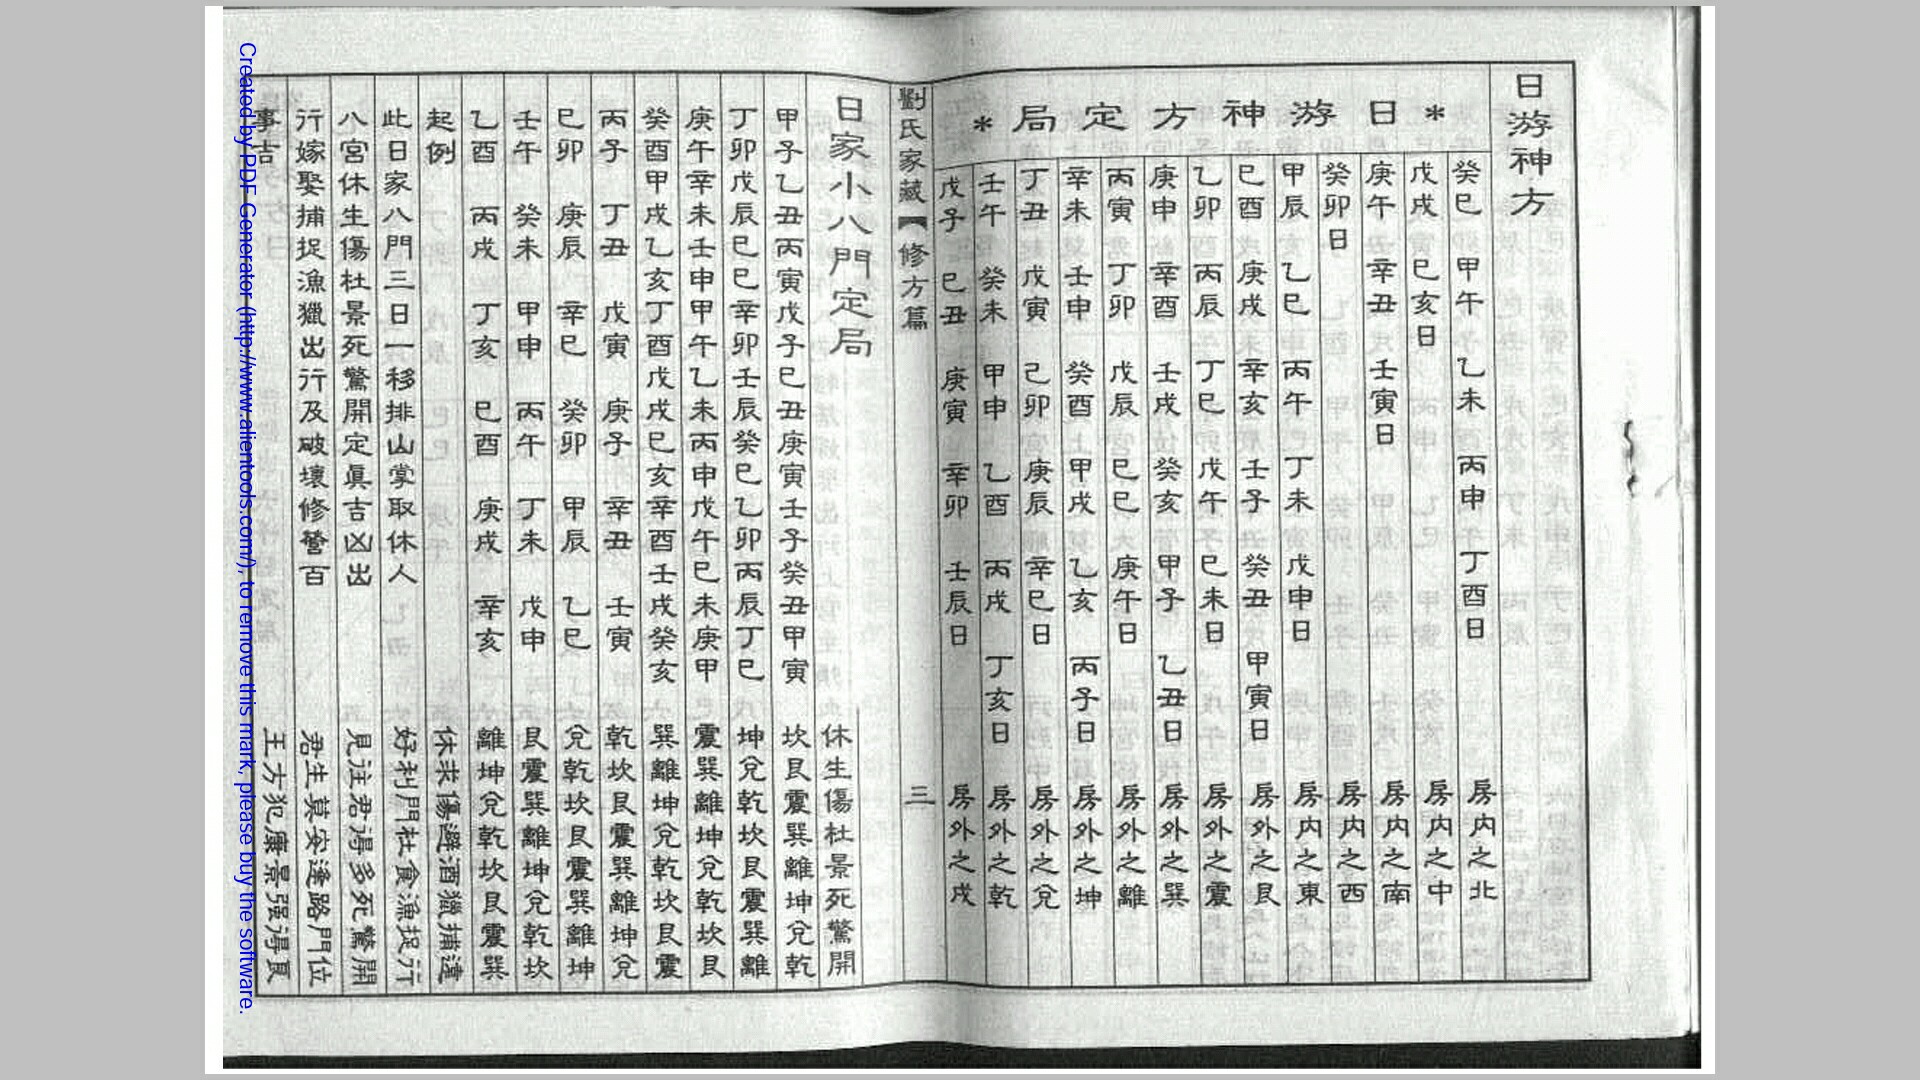 日游神方
*日游神方定局*
癸巳 甲午 乙未 丙申 丁酉日 房内之北
戊戌 巳亥日 房内之中
庚午 辛丑 壬寅日 房内之南
癸卯日 房内之西
甲辰 乙巳 丙午 丁未 戊申日 房内之東
巳酉 庚戌 辛亥 壬子 癸丑 甲寅日 房外之艮
乙卯 丙辰 丁巳 戊午 巳未日 房外之震
庚申 辛酉 壬戌 癸亥 甲子 乙丑日 房外之巽
丙寅 丁卯 戊辰 巳巳 庚午日 房外之離
辛未 壬申 癸酉 甲戌 乙亥 丙子日 房外之坤
丁丑 戊寅 己卯 庚辰 辛巳日 房外之兌
壬午 癸未 甲申 乙酉 丙戌 丁亥日 房外之乾
戊子 巳丑 庚寅 辛卯 壬辰日 房外之戌
劉氏家藏【修方篇 三
日家小八門定局 休生傷杜景死驚開
甲子乙丑丙寅戊子巳丑庚寅壬子癸丑甲寅 坎艮震巽離坤兌乾
丁卯戊辰巳巳辛卯壬辰癸巳乙卯丙辰丁巳 坤兌乾坎艮震巽離
庚午辛未壬申甲午乙未丙申戊午巳未庚甲 震巽離坤兌乾坎艮
癸酉甲戌乙亥丁酉戊戌巳亥辛酉壬戌癸亥 巽離坤兌乾坎艮震
丙子 丁丑 戊寅 庚子 辛丑 壬寅 乾坎艮震巽離坤兌
巳卯 庚辰 辛巳 癸卯 甲辰 乙巳 兌乾坎艮震巽離坤
壬午 癸未 甲申 丙午 丁未 戊申 艮震巽離坤兌乾坎
乙酉 丙戌 丁亥 巳酉 庚戌 辛亥 離坤兌乾坎艮震巽
起例 休求傷避酒獵捕逢
此日家八門三日一移排山掌取休人 好利門杜食漁捉行
八宮休生傷杜景死驚開定眞吉凶出 見注君得多死驚開
行嫁娶捕捉漁獵出行及破壞修營百 君生莫安逢路門位
事吉 王方犯康景强得
Created by PDF Generator (http://www.alientools.com/), to remove this mark, please buy the software.